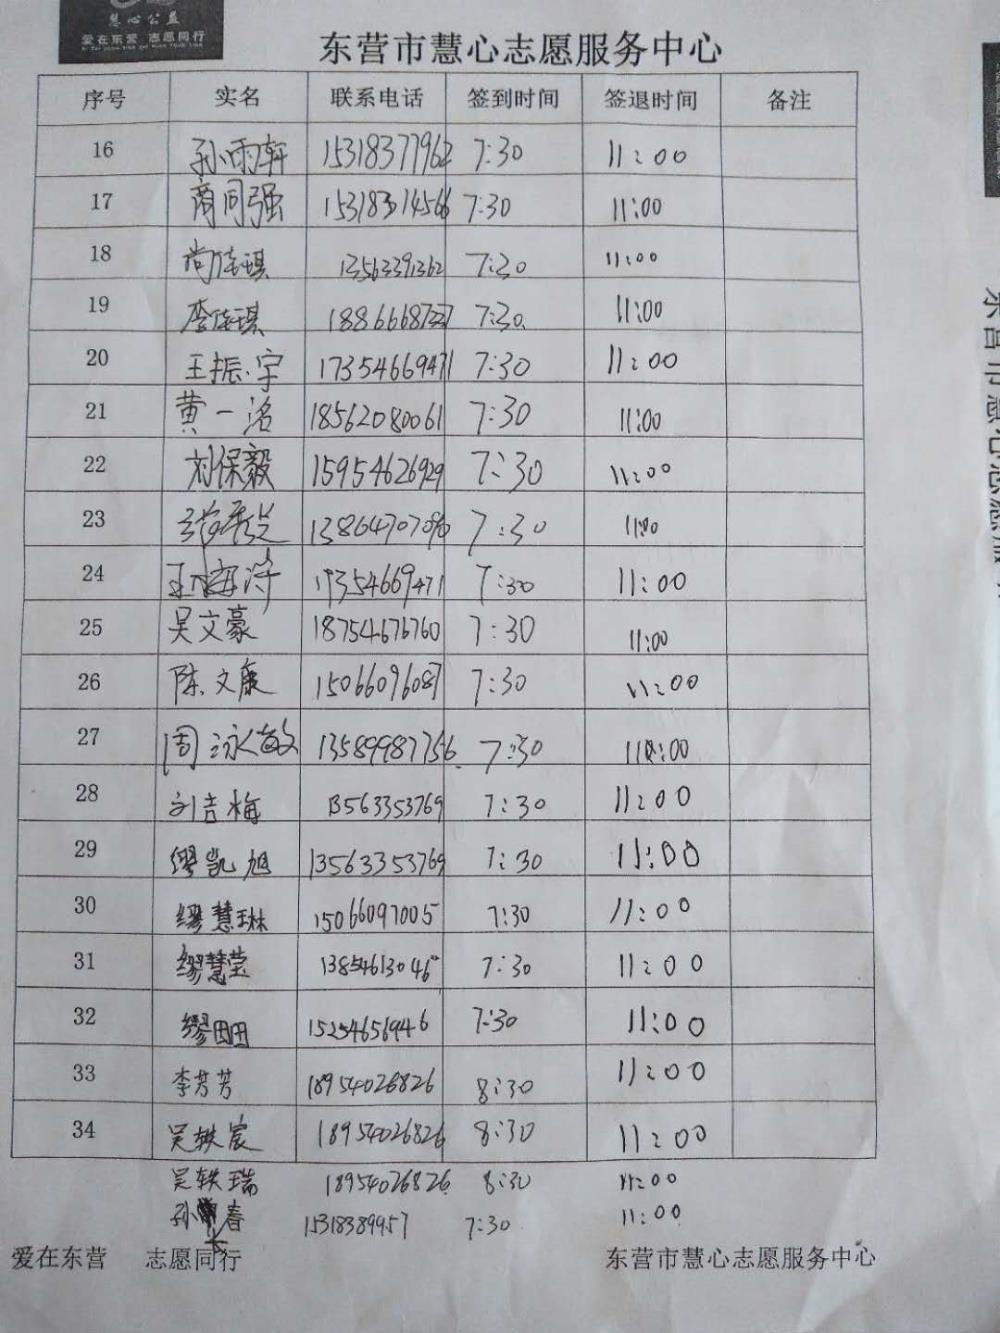 慧心公益
爱在东营 志愿同行
东营市慧心志愿服务中心
序号 实名 联系电话 签到时间 签退时间 备注
16 孙雨轩 15318377962 7:30 11:00
17 商同强 15318314566 7:30 11:00
18 尚佳琪 13563391362 7:30 11:00
19 李佳琪 7:30 11:00
20 王振宇 17354669471 7:30 11:00
21 黄一洺 18562080061 7:30 11:00
22 刘保毅 15954626929 7:30 11:00
23 7:30 11:00
24 17354669471 7:30 11:00
25 吴文豪 18754676760 7:30 11:00
26 陈文康 15066096087 7:30 11:00
27 周泳敏 13589987756 7:30 11:00
28 刘吉梅 13563353769 7:30 11:00
29 缪凯旭 13563353769 7:30 11:00
30 缪慧琳 15066097005 7:30 11:00
31 缪慧莹 7:30 11:00
32 缪田田 15254656946 7:30 11:00
33 李芳芳 18954026826 8:30 11:00
34 吴轶宸 18954026826 8:30 11:00
吴轶瑞 18954026826 8:30 11:00
孙 春 15318389957 7:30 11:00
爱在东营 志愿同行 东营市慧心志愿服务中心